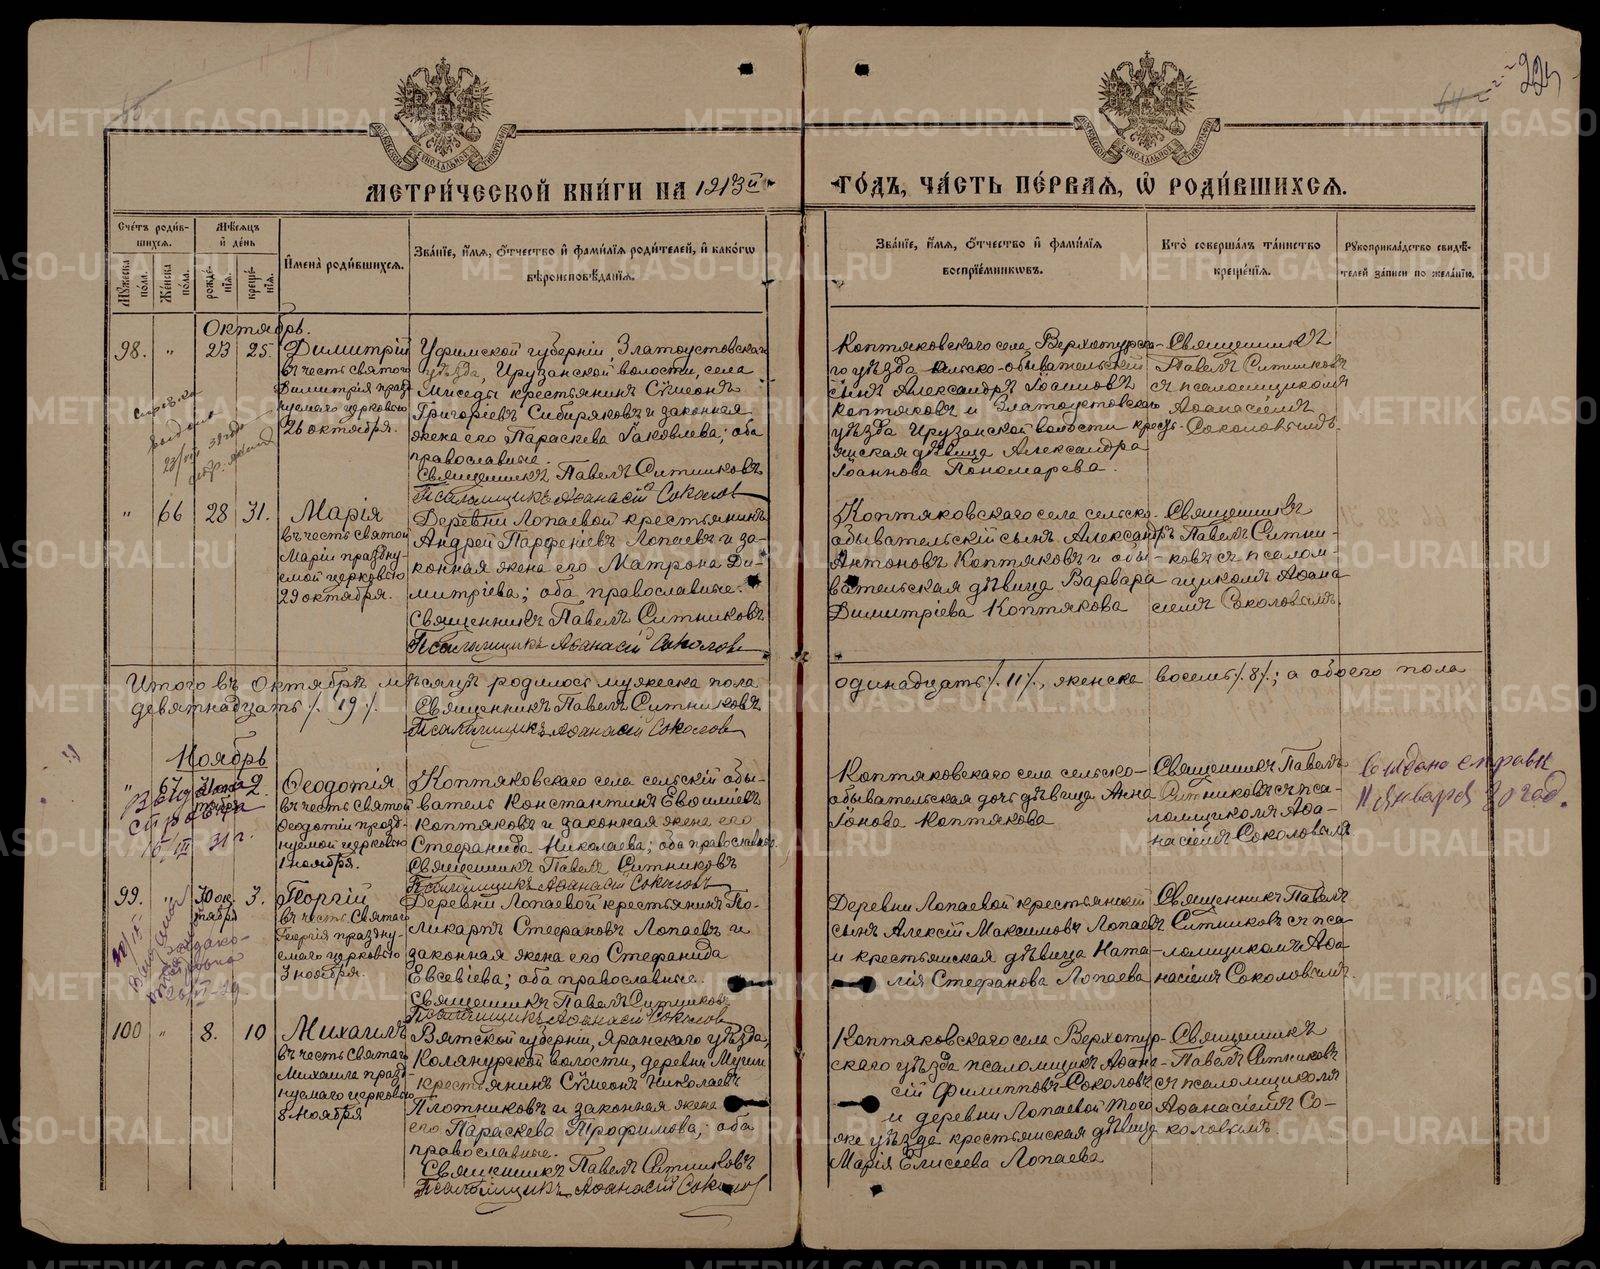 МЕТРИ́ЧЕСКОЙ КНИ́ГИ НА 1913й
ГО́ДЪ, ЧА́СТЬ ПЕ́РВАЯ, Ѽ РОДИ́ВШИХСЯ.
Сче́тъ роди́в-
шихся.
Мѣ́сяцъ
и҆ де́нь
И҆мена̀ роди́вшихся.
Зва́нїе, и҆́мя, ѻ҆́тчество и҆ фами́лїя роди́телей, и҆ како́гѡ
вѣроисповѣ́данїя.
Му́жеска
по́ла.
Же́нска
по́ла.
рожде́-
нїя.
креще́-
нїя.
Зва́нїе, и҆́мя, ѻ҆́тчество и҆ фами́лїя
воспрїе́мникѡвъ.
Кто̀ соверша́лъ та́инство
креще́нїя.
Рꙋкоприкла́дство свидѣ́-
телей за́писи по жела́нїю.
Октябрь.
98. " 23 25.
Димитрій
въ честь святого
Димитрія празд-
нуемаго церковью
26 октября.
Уфимской губерніи, Златоустовскаго
уѣзда, Ирузанской волости, села
Миседы крестьянинъ Сѵмеонъ
Григорьевъ Сибиряковъ и законная
жена его Параскева Іаковлева; оба
православные.
Священникъ Павелъ Ситниковъ
Псаломщикъ Аѳанасій Соколов
Коптяковскаго села Верхотурска-
го уѣзда сельско-обывательскій
сынъ Александръ Іоанновъ
Коптяковъ и Златоустовскаго
уѣзда Ирузанской волости кресть-
янская дѣвица Александра
Іоаннова Пономарева.
Священникъ
Павелъ Ситниковъ
съ псаломщикомъ
Аѳанасіемъ
Соколовымъ.
" 66 28 31.
Марія
въ честь святой
Маріи праздну-
емой церковью
29 октября.
Деревни Лопаевой крестьянинъ
Андрей Парфеніевъ Лопаевъ и за-
конная жена его Матрона Ди-
митріева; оба православные.
Священникъ Павелъ Ситниковъ
Псаломщикъ Аѳанасій Соколов
Коптяковскаго села сельско-
обывательскій сынъ Александръ
Антоновъ Коптяковъ и обы-
вательская дѣвица Варвара
Димитріева Коптякова
Священникъ
Павелъ Ситни-
ковъ съ псалом-
щикомъ Аѳана
сіемъ Соколовымъ.
Итого въ Октябрѣ мѣсяцѣ родилось мужеска пола
одинадцать /. 11 /., женска восемь /. 8 /.; а обоего пола
девятнадцать /. 19 /.
Священникъ Павелъ Ситниковъ
Псаломщикъ Аѳанасій Соколов
Ноябрь
" 67 2.
Ѳеодотія
въ честь святой
Ѳеодотіи празд-
нуемой церковью
1 ноября.
Коптяковскаго села сельскій обы-
ватель Константинъ Евѳиміевъ
Коптяковъ и законная жена его
Стефанида Николаева; оба православные.
Священникъ Павелъ Ситниковъ
Псаломщикъ Аѳанасій Соколовъ
Коптяковскаго села сельско-
обывательская дочь дѣвица Анна
Іонова Коптякова
Священникъ Павелъ
Ситниковъ съ пса-
ломщикомъ Аѳа-
насіемъ Соколовымъ
Выдана справк
11 Января
99. " 30 ок-
тября 3.
Георгій
въ честь Святаго
Георгія праздну-
емаго церковью
3 ноября.
Деревни Лопаевой крестьянинъ По-
ликарпъ Стефановъ Лопаевъ и
законная жена его Стефанида
Евсевіева; оба православные.
Священникъ Павелъ Ситниковъ
Псаломщикъ Аѳанасій Соколов
Деревни Лопаевой крестьянскій
сынъ Алексій Максимовъ Лопаевъ
и крестьянская дѣвица Ната-
лія Стефанова Лопаева
Священникъ Павелъ
Ситниковъ съ пса-
ломщикомъ Аѳа
насіемъ Соколовымъ.
100 " 8. 10
Михаилъ
въ честь Святаго
Михаила празд-
нуемаго церковью
8 ноября
Вятской губерніи, Яранскаго уѣзда,
Колянурской волости, деревни
крестьянинъ Сѵмеонъ Николаевъ
Плотниковъ и законная жена
его Параскева Трофимова; оба
православные.
Священникъ Павелъ Ситниковъ
Псаломщикъ Аѳанасій Соколов
Коптяковскаго села Верхотур-
скаго уѣзда псаломщикъ Аѳана-
сій Филипповъ Соколовъ
и деревни Лопаевой того
же уѣзда крестьянская дѣвица
Марія Елисеева Лопаева
Священникъ
Павелъ Ситниковъ
съ псаломщикомъ
Аѳанасіемъ Со-
коловымъ
METRIKI.GASO-URAL.RU